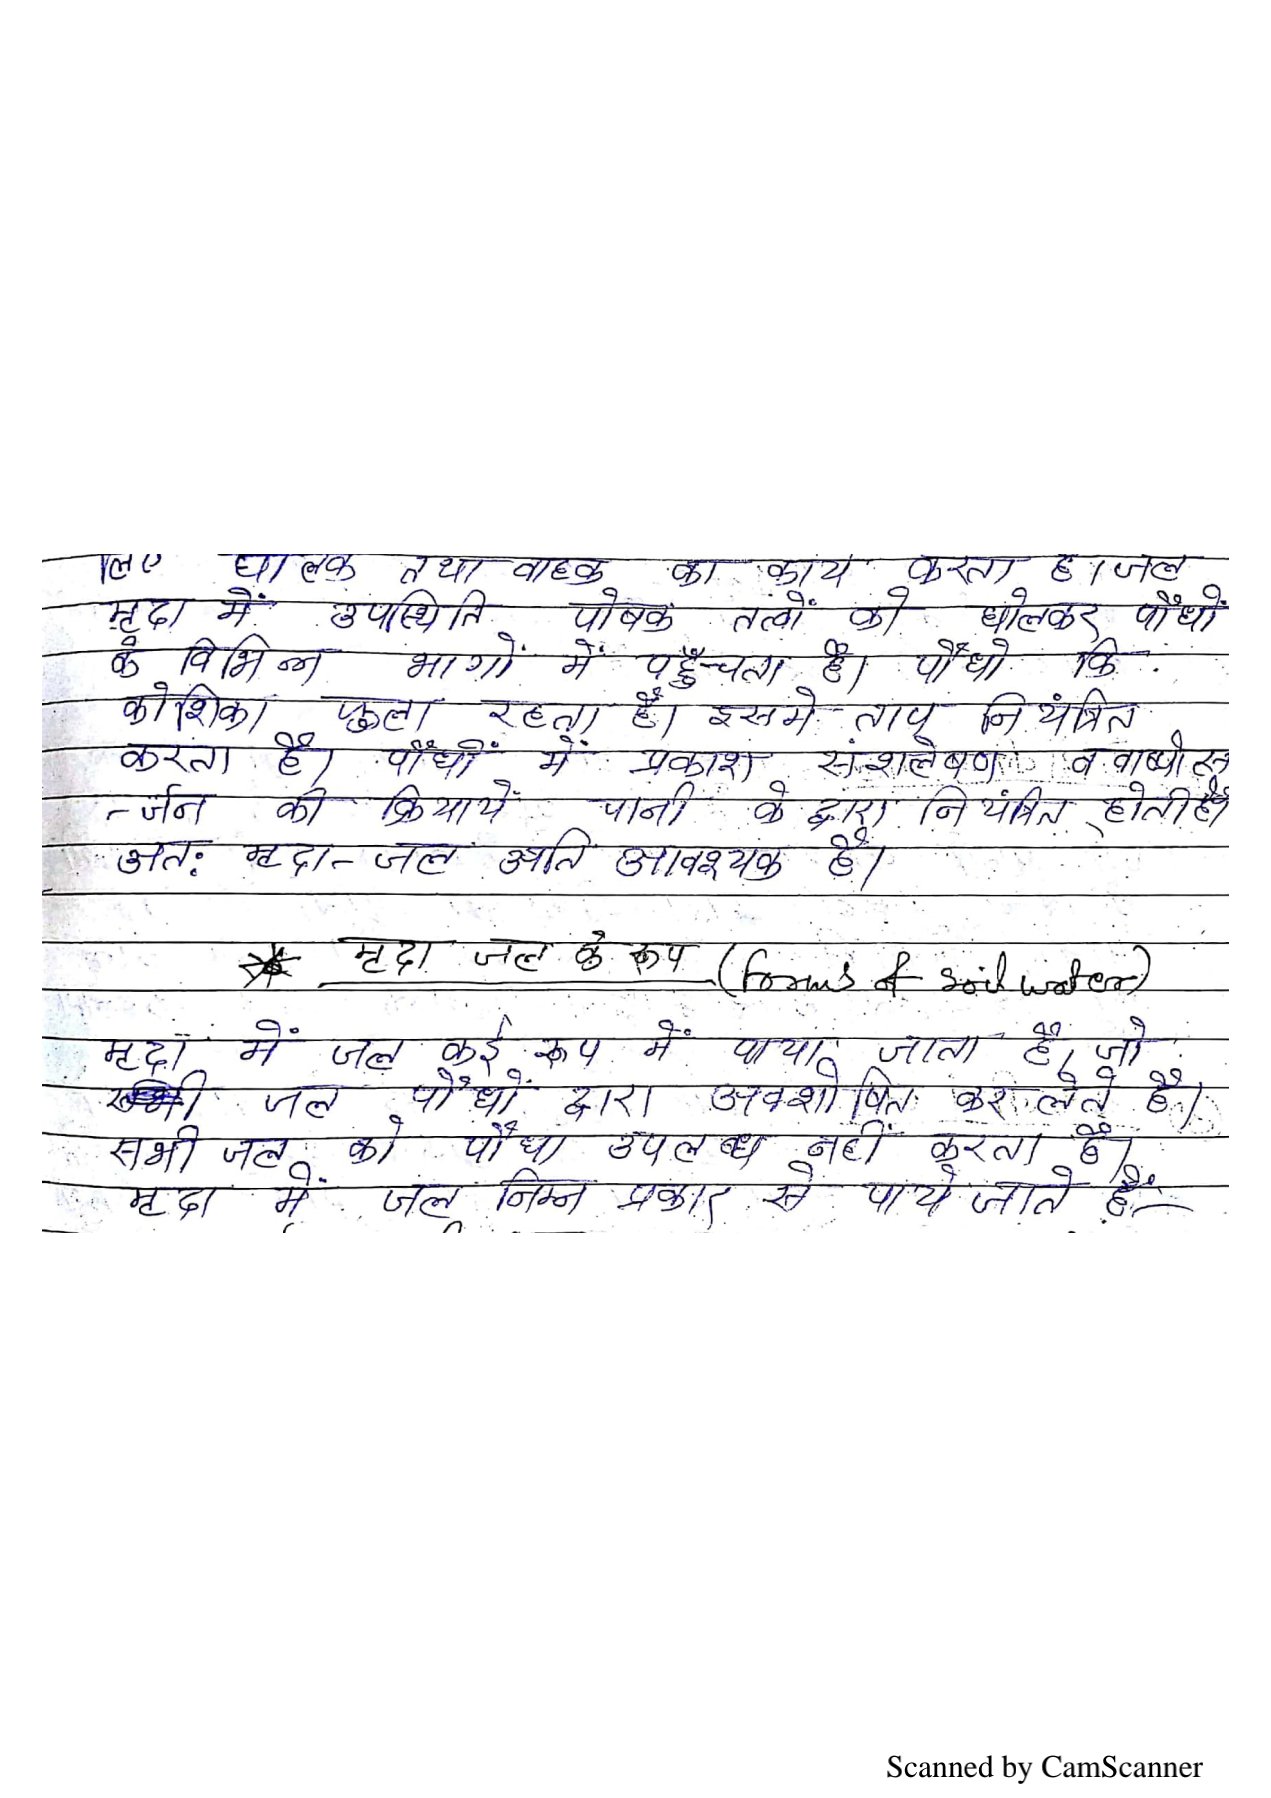 लिए घोलक तथा वाहक का कार्य करता है। जल
मृदा में उपस्थिति पोषक तत्वों को घोलकर पौधों
के विभिन्न भागों में पहुँचता है। पौधो कि
कोशिका फुला रहता है। इसमे ताप नियंत्रित
करता है। पौधों में प्रकाश संश्लेषण व वाष्पोत्स
-र्जन की क्रियायें पानी के द्वारा नियंत्रित होती है।
अतः मृदा-जल अति आवश्यक है।
* मृदा जल के रूप (forms of soil water)
मृदा में जल कई रूप में पाया जाता है, जो
जल पौधों द्वारा अवशोषित कर लेते है।
सभी जल को पौधा उपलब्ध नहीं करता है।
मृदा में जल निम्न प्रकार से पाये जाते हैं:-
Scanned by CamScanner